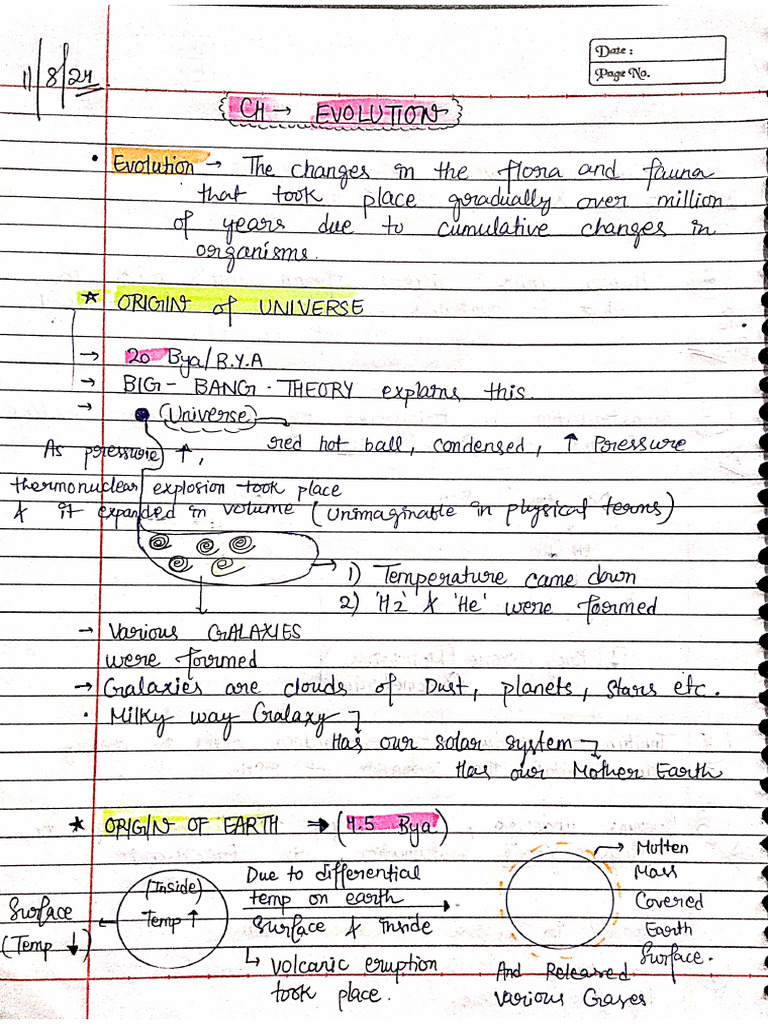 Date :
Page No.
11/8/24
CH → EVOLUTION
• Evolution → The changes in the flora and fauna
that took place gradually over million
of years due to cumulative changes in
organisms.
★ ORIGIN of UNIVERSE
→ 20 Bya/B.Y.A
→ BIG-BANG-THEORY explains this.
→ (Universe)
red hot ball, condensed, ↑ Pressure
As pressure ↑,
thermonuclear explosion took place
& it expanded in volume (unimaginable in physical terms)
→ 1) Temperature came down
2) 'H2' & 'He' were formed
→ Various GALAXIES
were formed
→ Galaxies are clouds of Dust, planets, stars etc.
• Milky way Galaxy
Has our solar system
Has our Mother Earth
★ ORIGIN OF EARTH ⇒ (4.5 Bya)
Surface
(Temp ↓)
(Inside)
Temp ↑
Due to differential
temp on earth
surface & inside
↳ volcanic eruption
took place.
→ Molten
Mass
Covered
Earth
Surface.
And Released
various Gases